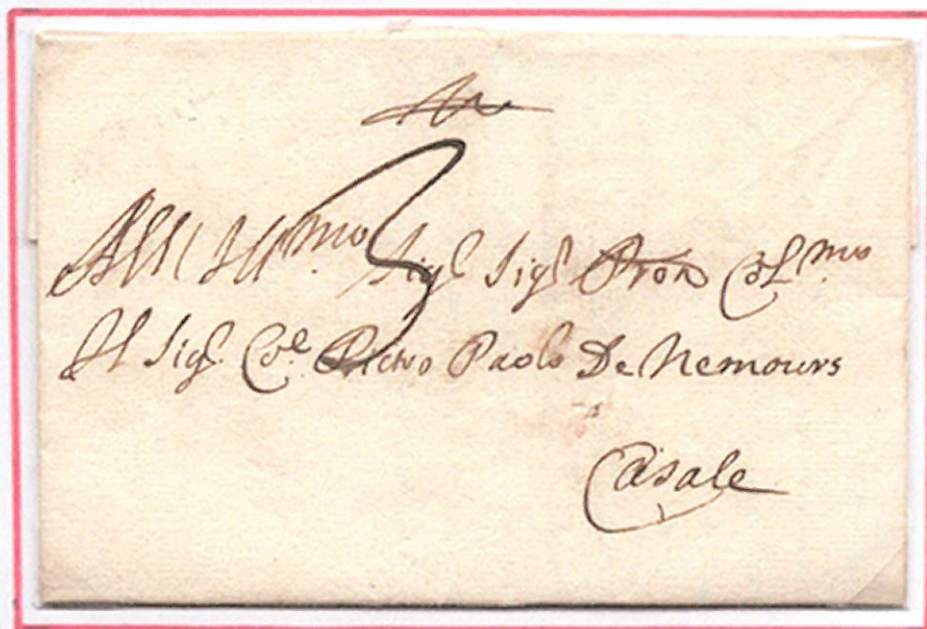 3
All Ill.mo Sig.e Sig.e Pron Col.mo
Il Sig. Co.e Pietro Paolo De Nemours
Casale